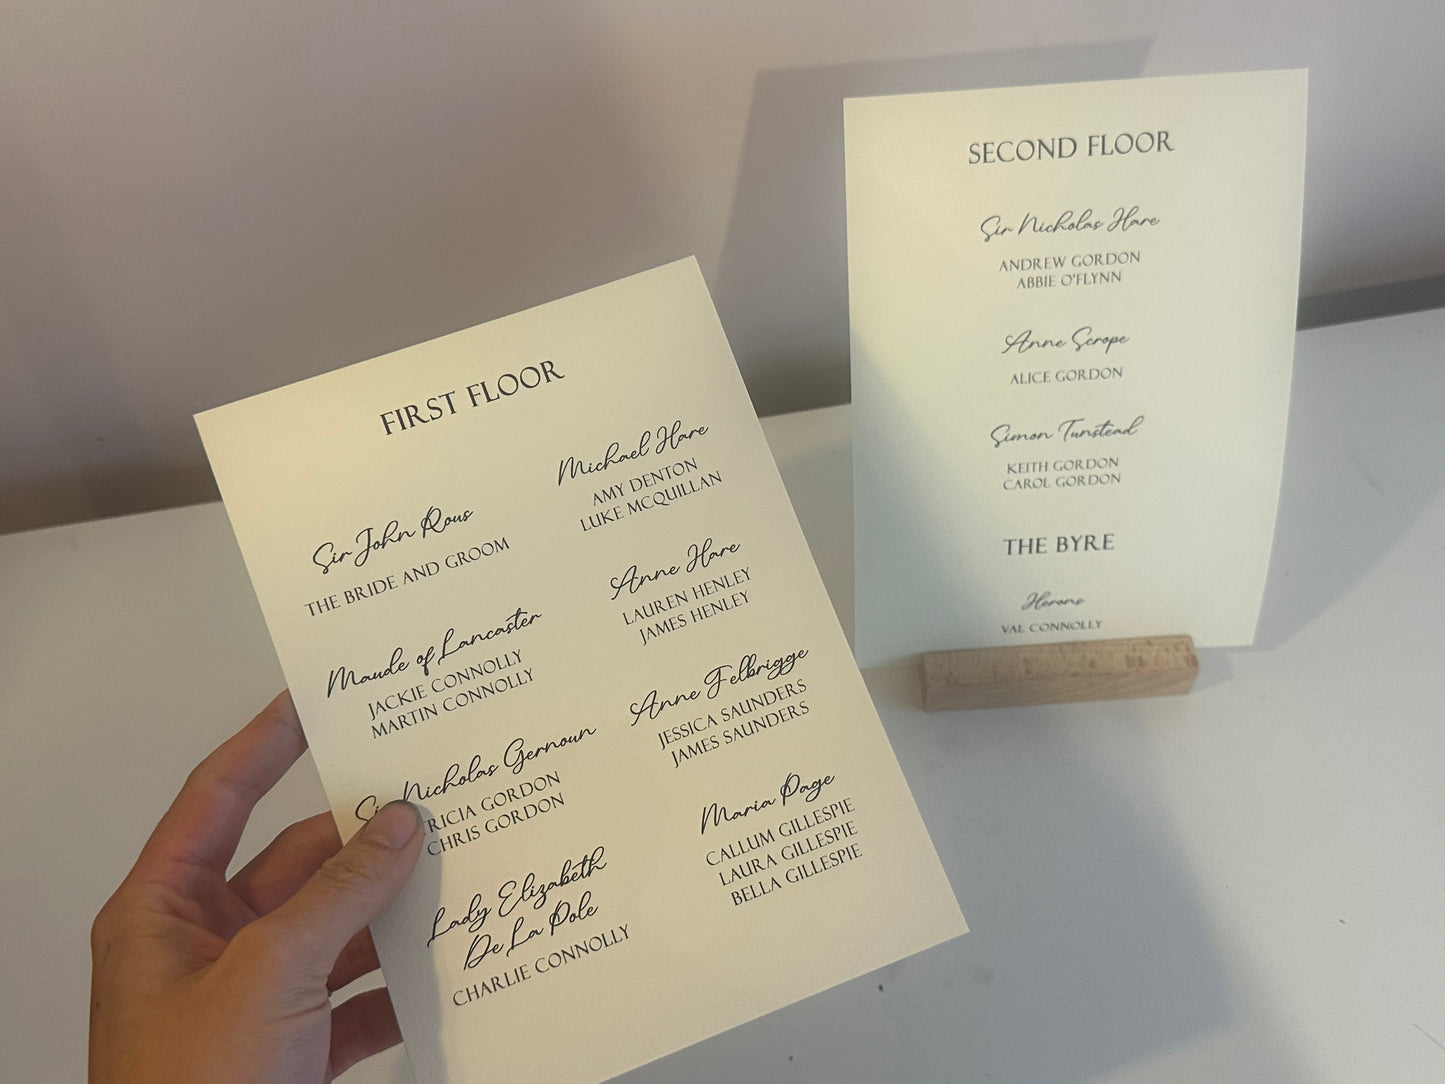 FIRST FLOOR
Sir John Rous
THE BRIDE AND GROOM
Maude of Lancaster
JACKIE CONNOLLY
MARTIN CONNOLLY
Nicholas Gernoun
GORDON
CHRIS GORDON
Lady Elizabeth
De La Pole
CHARLIE CONNOLLY
Michael Hare
AMY DENTON
LUKE MCQUILLAN
Anne Hare
LAUREN HENLEY
JAMES HENLEY
Anne Felbrigge
JESSICA SAUNDERS
JAMES SAUNDERS
Maria Page
CALLUM GILLESPIE
LAURA GILLESPIE
BELLA GILLESPIE
SECOND FLOOR
Sir Nicholas Hare
ANDREW GORDON
ABBIE O'FLYNN
Anne Scrope
ALICE GORDON
Simon Tunstead
KEITH GORDON
CAROL GORDON
THE BYRE
Herons
VAL CONNOLLY